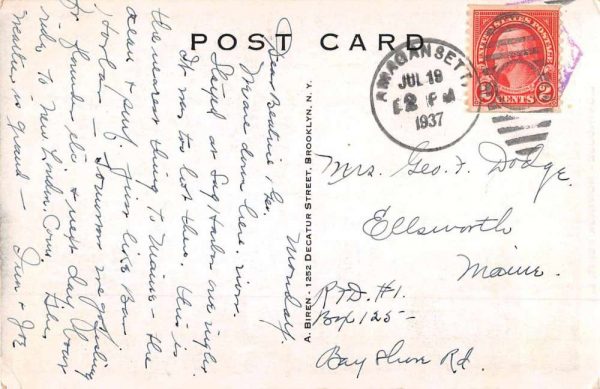 POST CARD
AMAGANSETT
JUL 19
2 PM
1937
UNITED STATES POSTAGE
2 CENTS 2
Mrs. Geo. F. Dodge.
Ellsworth
Maine.
R.F.D. #1.
Box 125-
Bay Shore Rd.
A. BIREN - 1252 DECATUR STREET, BROOKLYN, N. Y.
Monday.
Dear Beatrice & Geo,
We are down here now.
Stayed at Sag Harbor one night
It was too hot there. this is
the nearest thing to Maine - the
ocean & surf. Just like Bar
Harbor — Tomorrow we go fishing
for flounders etc & next day
ride to New London, Conn.
weather is grand — & Joe